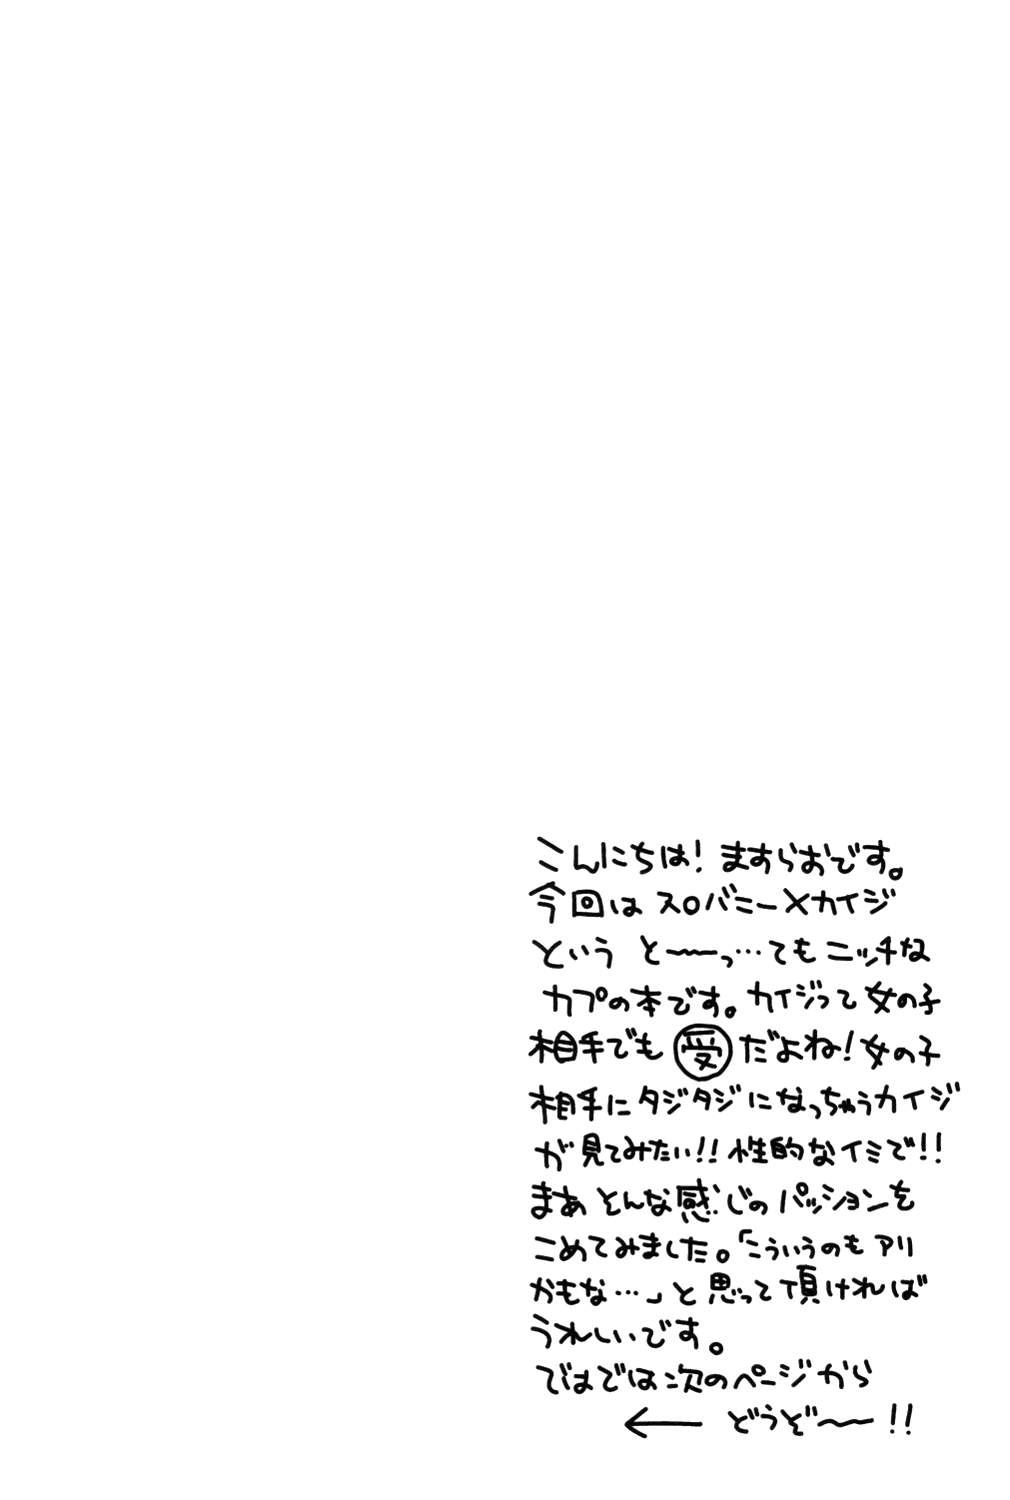 こんにちは! ますらおです。
今回は スロバニー×カイジ
という と〜〜っ…てもニッチな
カプの本です。カイジって女の子
相手でも 受 だよね!女の子
相手にタジタジになっちゃうカイジ
が見てみたい!!性的なイミで!!
まあ そんな感じのパッションを
こめてみました。「こういうのも アリ
かもな…」と思って頂ければ
うれしいです。
ではでは次のページから
← どうぞ〜〜 !!